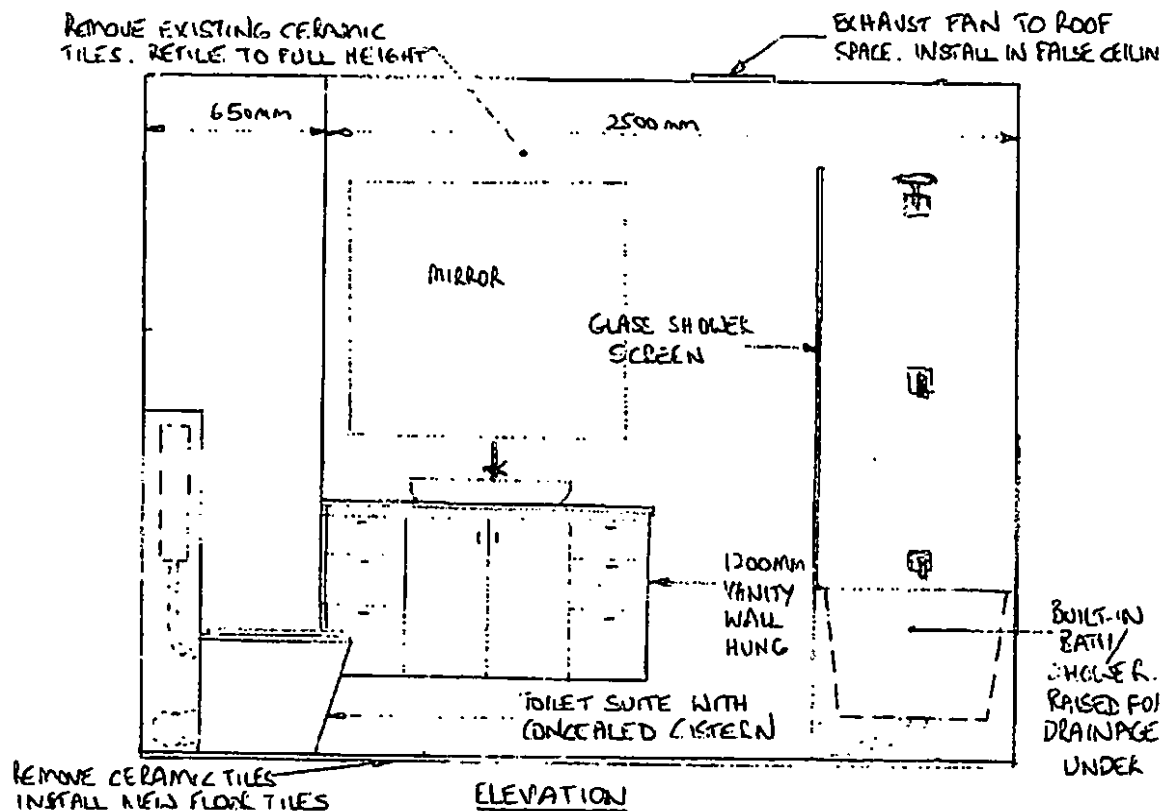 REMOVE EXISTING CERAMIC
TILES. RETILE TO FULL HEIGHT
EXHAUST FAN TO ROOF
SPACE. INSTALL IN FALSE CEILIN
650mm
2500mm
MIRROR
GLASS SHOWER
SCREEN
1200MM
VANITY
WALL
HUNG
BUILT-IN
BATH/
SHOWER.
RAISED FOR
DRAINAGE
UNDER
TOILET SUITE WITH
CONCEALED CISTERN
REMOVE CERAMIC TILES
INSTALL NEW FLOOR TILES
ELEVATION